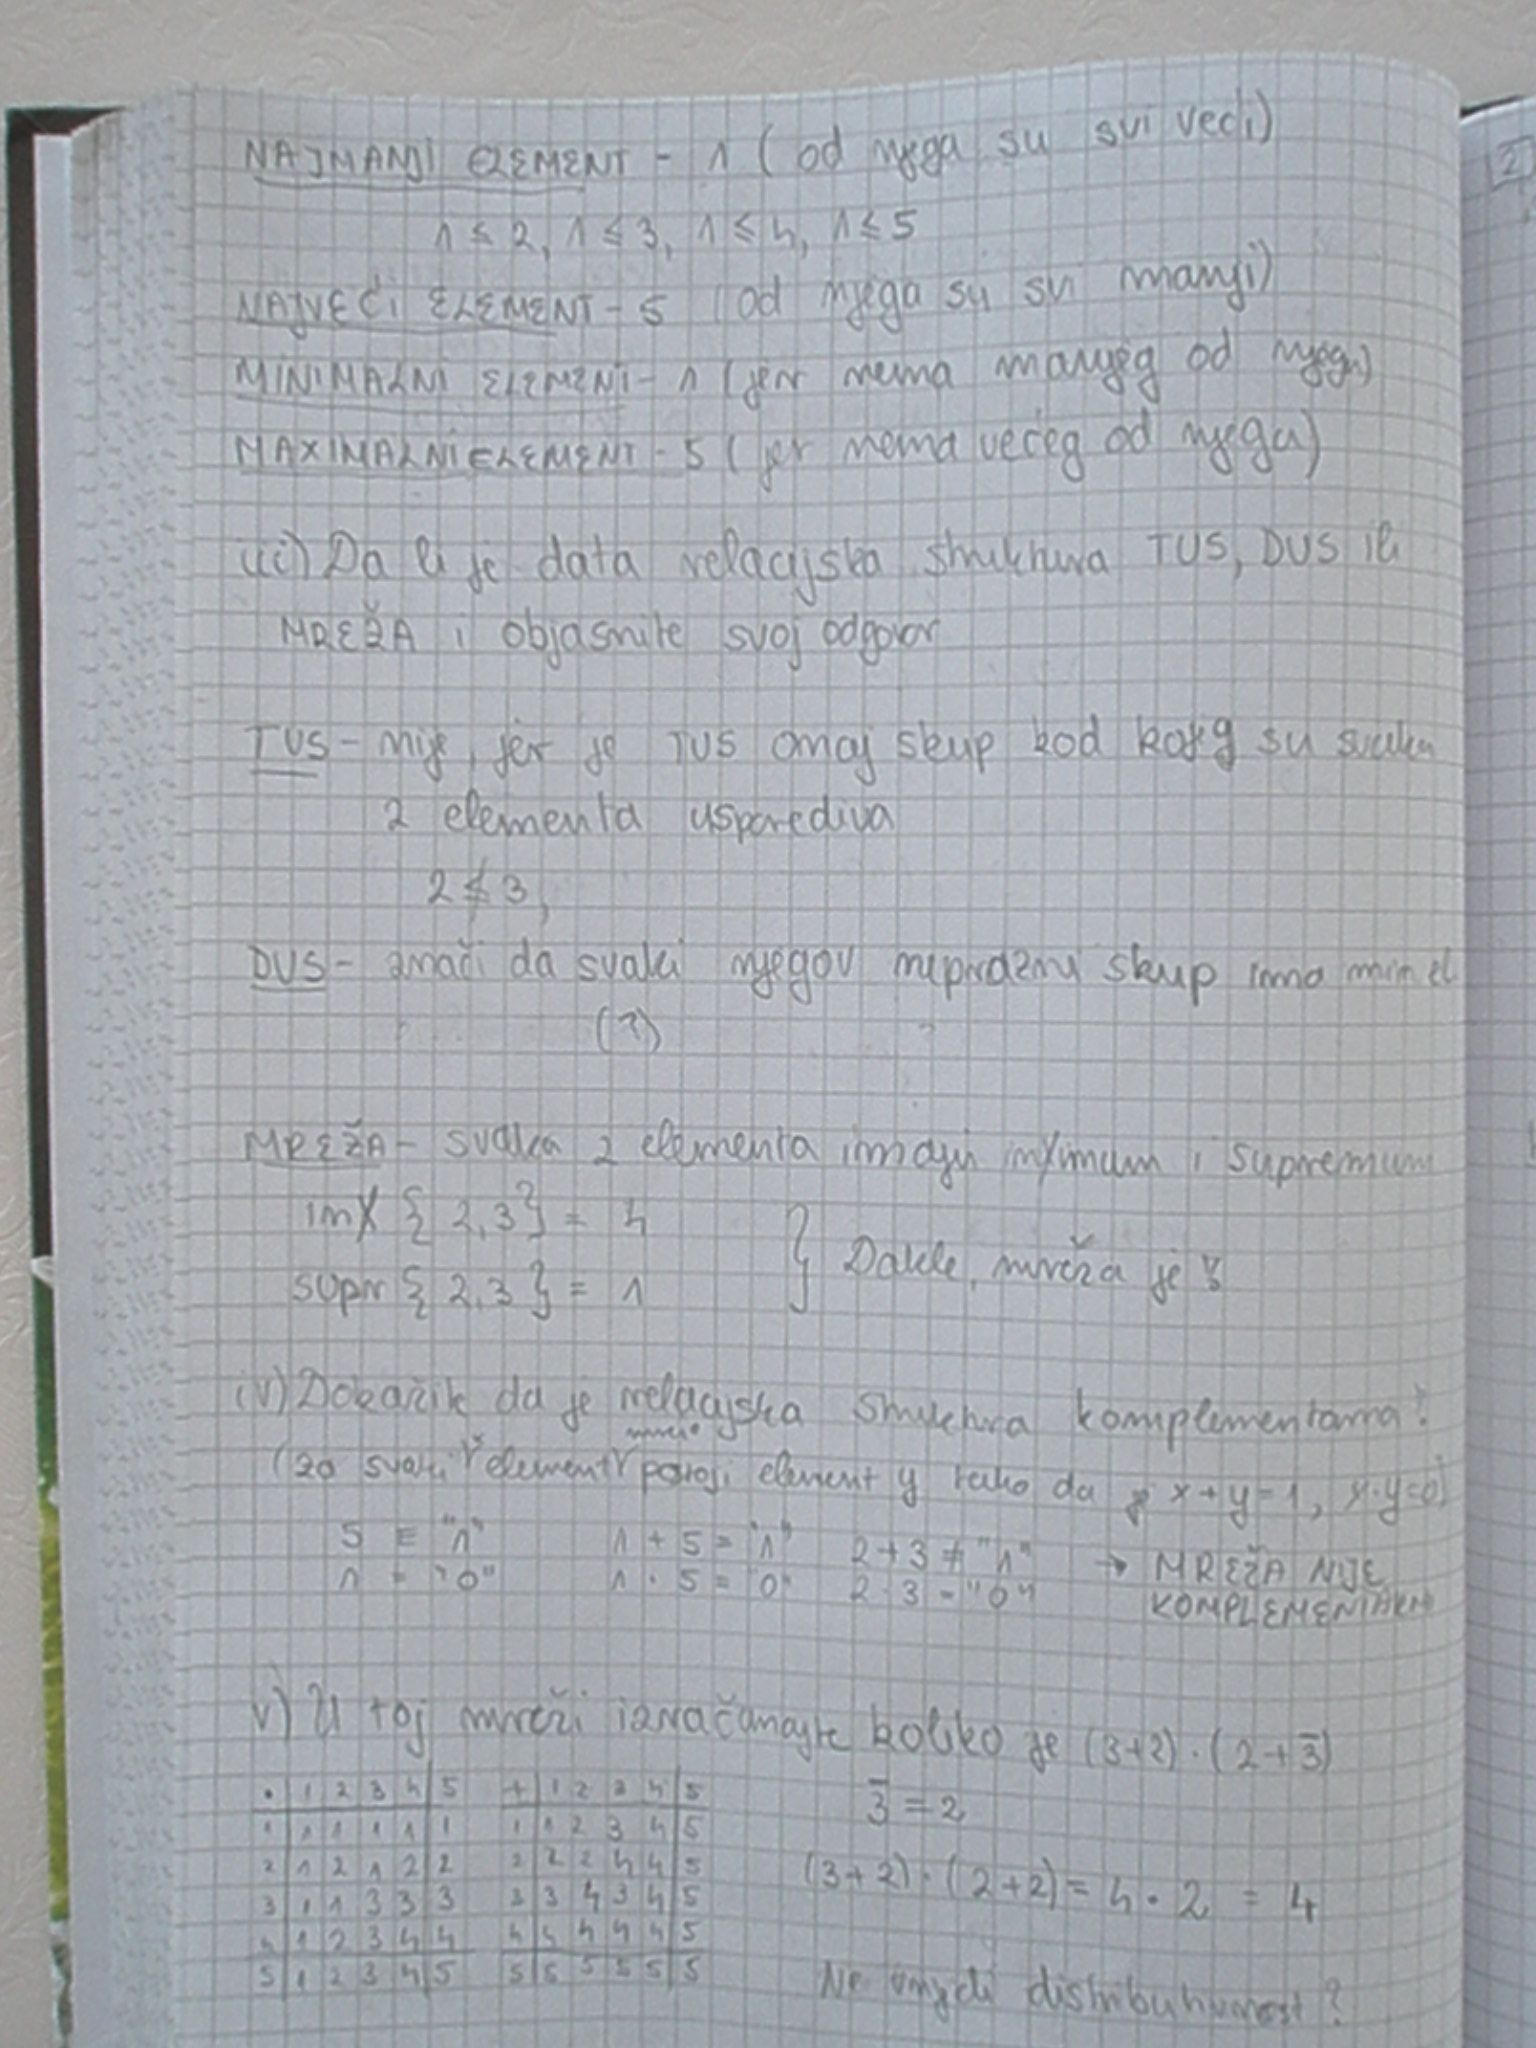 NAJMANJI ELEMENT - 1 (od njega su svi veći)
1 ≤ 2, 1 ≤ 3, 1 ≤ 4, 1 ≤ 5
NAJVEĆI ELEMENT - 5 (od njega su svi manji)
MINIMALNI ELEMENT - 1 (jer nema manjeg od njega)
MAXIMALNI ELEMENT - 5 (jer nema većeg od njega)
iii) Da li je data relacijska struktura TUS, DUS ili
MREŽA i objasnite svoj odgovor
TUS - nije, jer je TUS onaj skup kod kojeg su svaka
2 elementa usporediva
2 ≰ 3,
DUS - znači da svaki njegov neprazni skup ima min el
(?)
MREŽA - svaka 2 elementa imaju infimum i supremum
inf { 2,3 } = 4
supr { 2,3 } = 1
} Dakle, mreža je
iv) Dokažite da je relacijska struktura komplementarna!
mreža
(za svaki element postoji element y tako da x + y = 1, x · y = 0)
5 ≡ "1" 1 + 5 = "1" 2 + 3 ≠ "1" → MREŽA NIJE
1 = "0" 1 · 5 = "0" 2 · 3 = "0" KOMPLEMENTARNA
v) U toj mreži izračunajte koliko je (3+2) · (2+3̅)
· 1 2 3 4 5 + 1 2 3 4 5
3̅ = 2
1 1 1 1 1 1 1 1 2 3 4 5
2 1 2 1 2 2 2 2 2 4 4 5
(3+2) · (2+2) = 4 · 2 = 4
3 1 1 3 3 3 3 3 4 3 4 5
4 1 2 3 4 4 4 4 4 4 4 5
5 1 2 3 4 5 5 5 5 5 5 5
Ne vrijedi distributivnost?